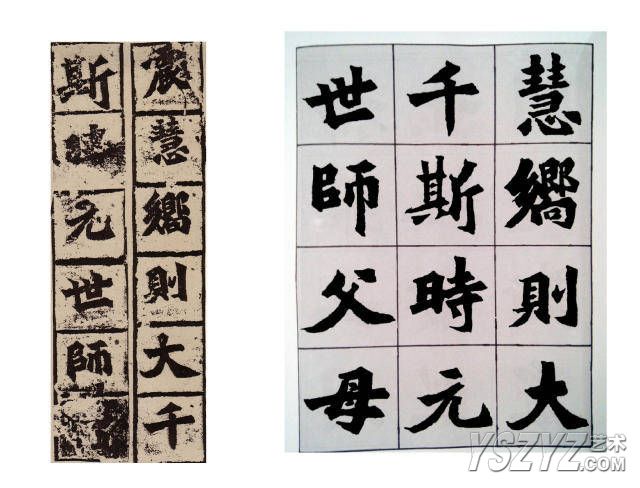 震慧嚮則大千
斯元世師
慧嚮則大
千斯時元
世師父母
YSZYZ艺术
.COM